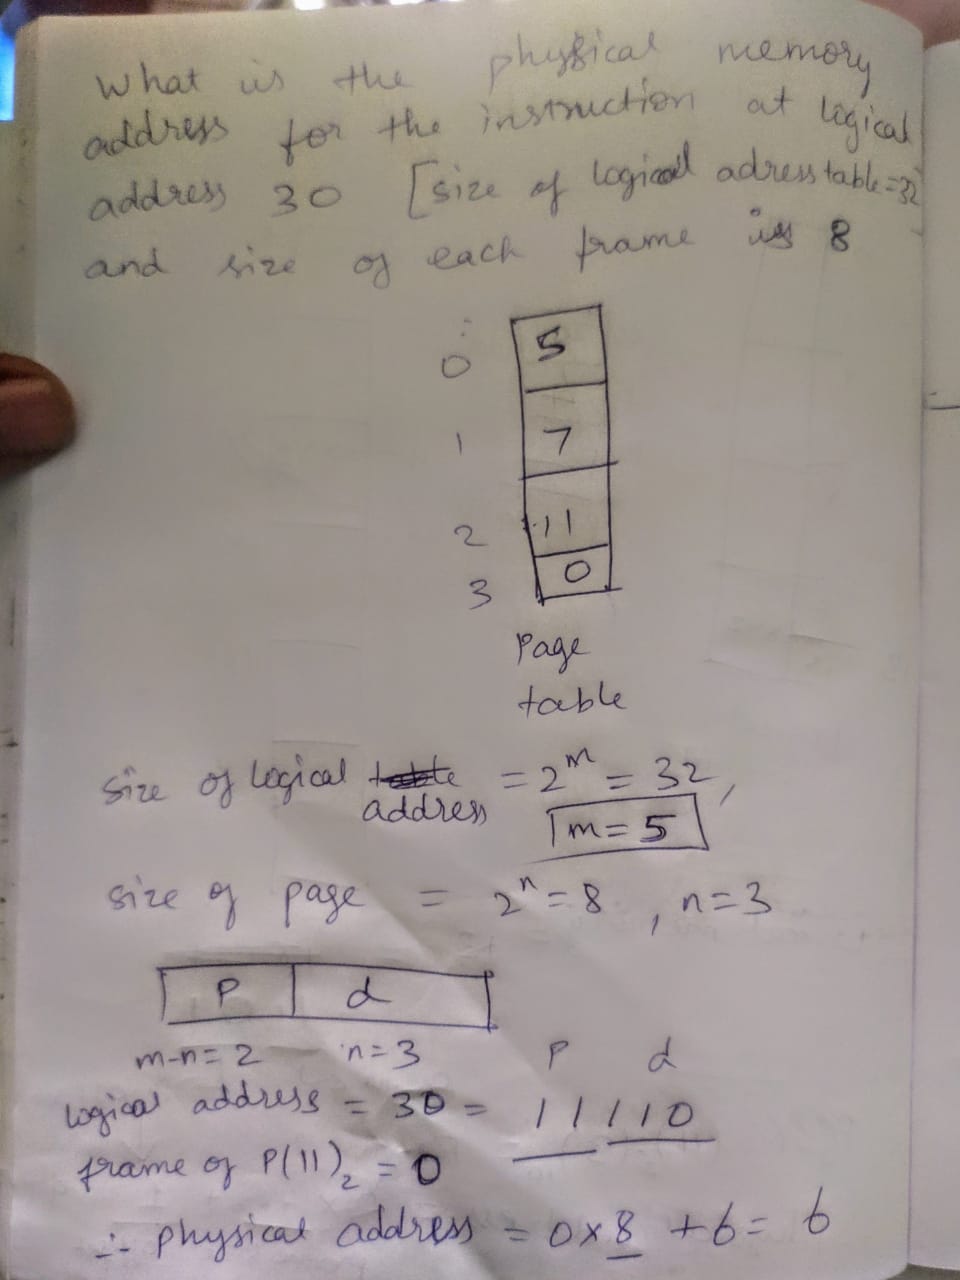 What is the physical memory
address for the instruction at logical
address 30 [size of logical adress table=32
and size of each frame is 8
0 5
1 7
2 11
3 0
Page
table
size of logical address = 2^m = 32,
m=5
size of page = 2^n = 8, n=3
P d
m-n=2 n=3
P d
logical address = 30 = 11110
frame of P(11)₂ = 0
∴ physical address = 0x8 +6= 6